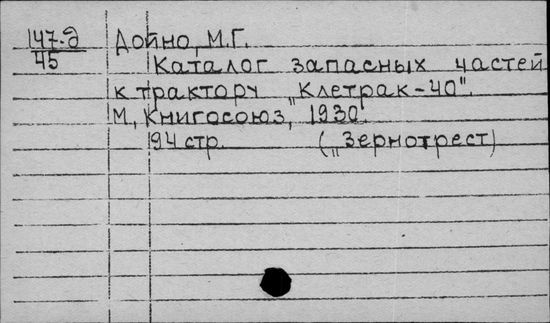 147-д Дойно, М.Г.
45 Каталог запасных частей
к трактору „Клетрак-40".
М, Книгосоюз, 1930.
94 стр. („Зернотрест)